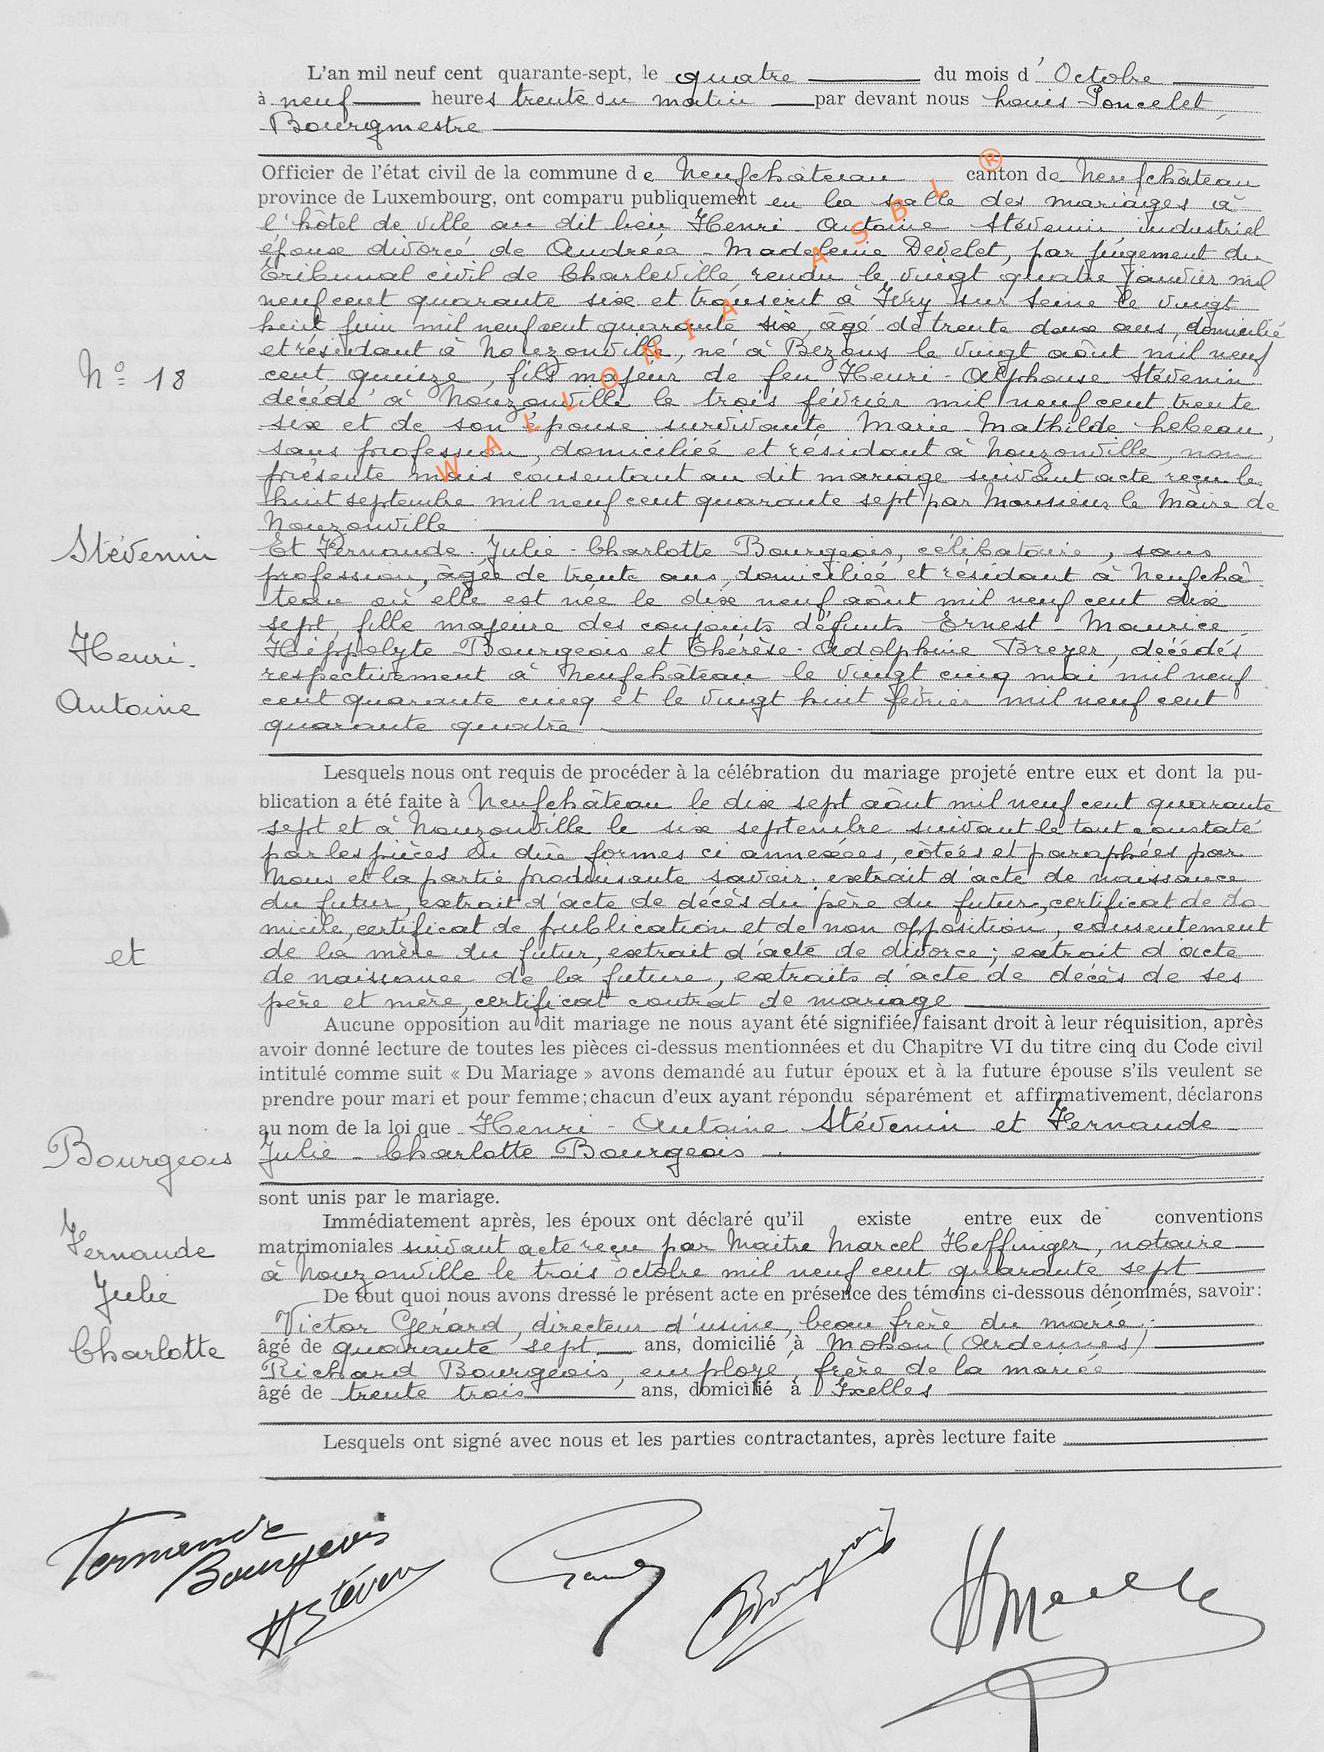 L'an mil neuf cent quarante-sept, le quatre du mois d'Octobre
à neuf heures trente du matin par devant nous Louis Poncelet,
Bourgmestre
Officier de l'état civil de la commune de Neufchâteau canton de Neufchâteau
province de Luxembourg, ont comparu publiquement en la salle des mariages à
l'hôtel de ville au dit lieu Henri-Antoine Stévenin industriel
épouse divorcé de Andréa-Madeleine Develet, par jugement du
Tribunal civil de Charleville rendu le vingt quatre janvier mil
neuf cent quarante six et transcrit à Ivry sur Seine le vingt
huit juin mil neuf cent quarante six, âgé de trente deux ans, domicilié
et résidant à Nouzonville, né à Bezons le vingt août mil neuf
N° 18
cent quinze, fils majeur de feu Henri-Alphonse Stévenin
décédé à Nouzonville le trois février mil neuf cent trente
six et de son épouse survivante Marie Mathilde Lebeau,
sans profession, domiciliée et résidant à Nouzonville, non
présente mais consentant au dit mariage suivant acte reçu le
huit septembre mil neuf cent quarante sept par Monsieur le Maire de
Nouzonville
WALLONIA ASBL ®
Stévenin
Henri-
Antoine
Et Fernande-Julie-Charlotte Bourgeois, célibataire, sans
profession, âgée de trente ans, domiciliée et résidant à Neufchâ
teau où elle est née le dix neuf août mil neuf cent dix
sept, fille majeure des conjoints défunts Ernest-Maurice
Hippolyte Bourgeois et Thérèse-Adolphine Breyer, décédés
respectivement à Neufchâteau le vingt cinq mai mil neuf
cent quarante cinq et le vingt huit février mil neuf cent
quarante quatre
Lesquels nous ont requis de procéder à la célébration du mariage projeté entre eux et dont la pu-
blication a été faite à Neufchâteau le dix sept août mil neuf cent quarante
sept et à Nouzonville le six septembre suivant le tout constaté
par les pièces en due formes ci annexées, côtées et paraphées par
Nous et la partie produisante savoir: extrait d'acte de naissance
du futur, extrait d'acte de décès du père du futur, certificat de do
micile, certificat de publication et de non opposition, consentement
de la mère du futur, extrait d'acte de divorce; extrait d'acte
de naissance de la future, extraits d'acte de décès de ses
père et mère, certificat contrat de mariage
et
Aucune opposition au dit mariage ne nous ayant été signifiée, faisant droit à leur réquisition, après
avoir donné lecture de toutes les pièces ci-dessus mentionnées et du Chapitre VI du titre cinq du Code civil
intitulé comme suit « Du Mariage » avons demandé au futur époux et à la future épouse s'ils veulent se
prendre pour mari et pour femme; chacun d'eux ayant répondu séparément et affirmativement, déclarons
au nom de la loi que Henri-Antoine Stévenin et Fernande-
Julie-Charlotte Bourgeois
sont unis par le mariage.
Bourgeois
Fernande
Julie
Charlotte
Immédiatement après, les époux ont déclaré qu'il existe entre eux de conventions
matrimoniales suivant acte reçu par Maître Marcel Heffinger, notaire
à Nouzonville le trois octobre mil neuf cent quarante sept
De tout quoi nous avons dressé le présent acte en présence des témoins ci-dessous dénommés, savoir:
Victor Gérard, directeur d'usine, beau frère du marié
âgé de quarante sept ans, domicilié à Mohon (Ardennes)
Richard Bourgeois, employé, frère de la mariée
âgé de trente trois ans, domicilié à Ixelles
Lesquels ont signé avec nous et les parties contractantes, après lecture faite
Fernande
Bourgeois
HStéven
Bourgeois